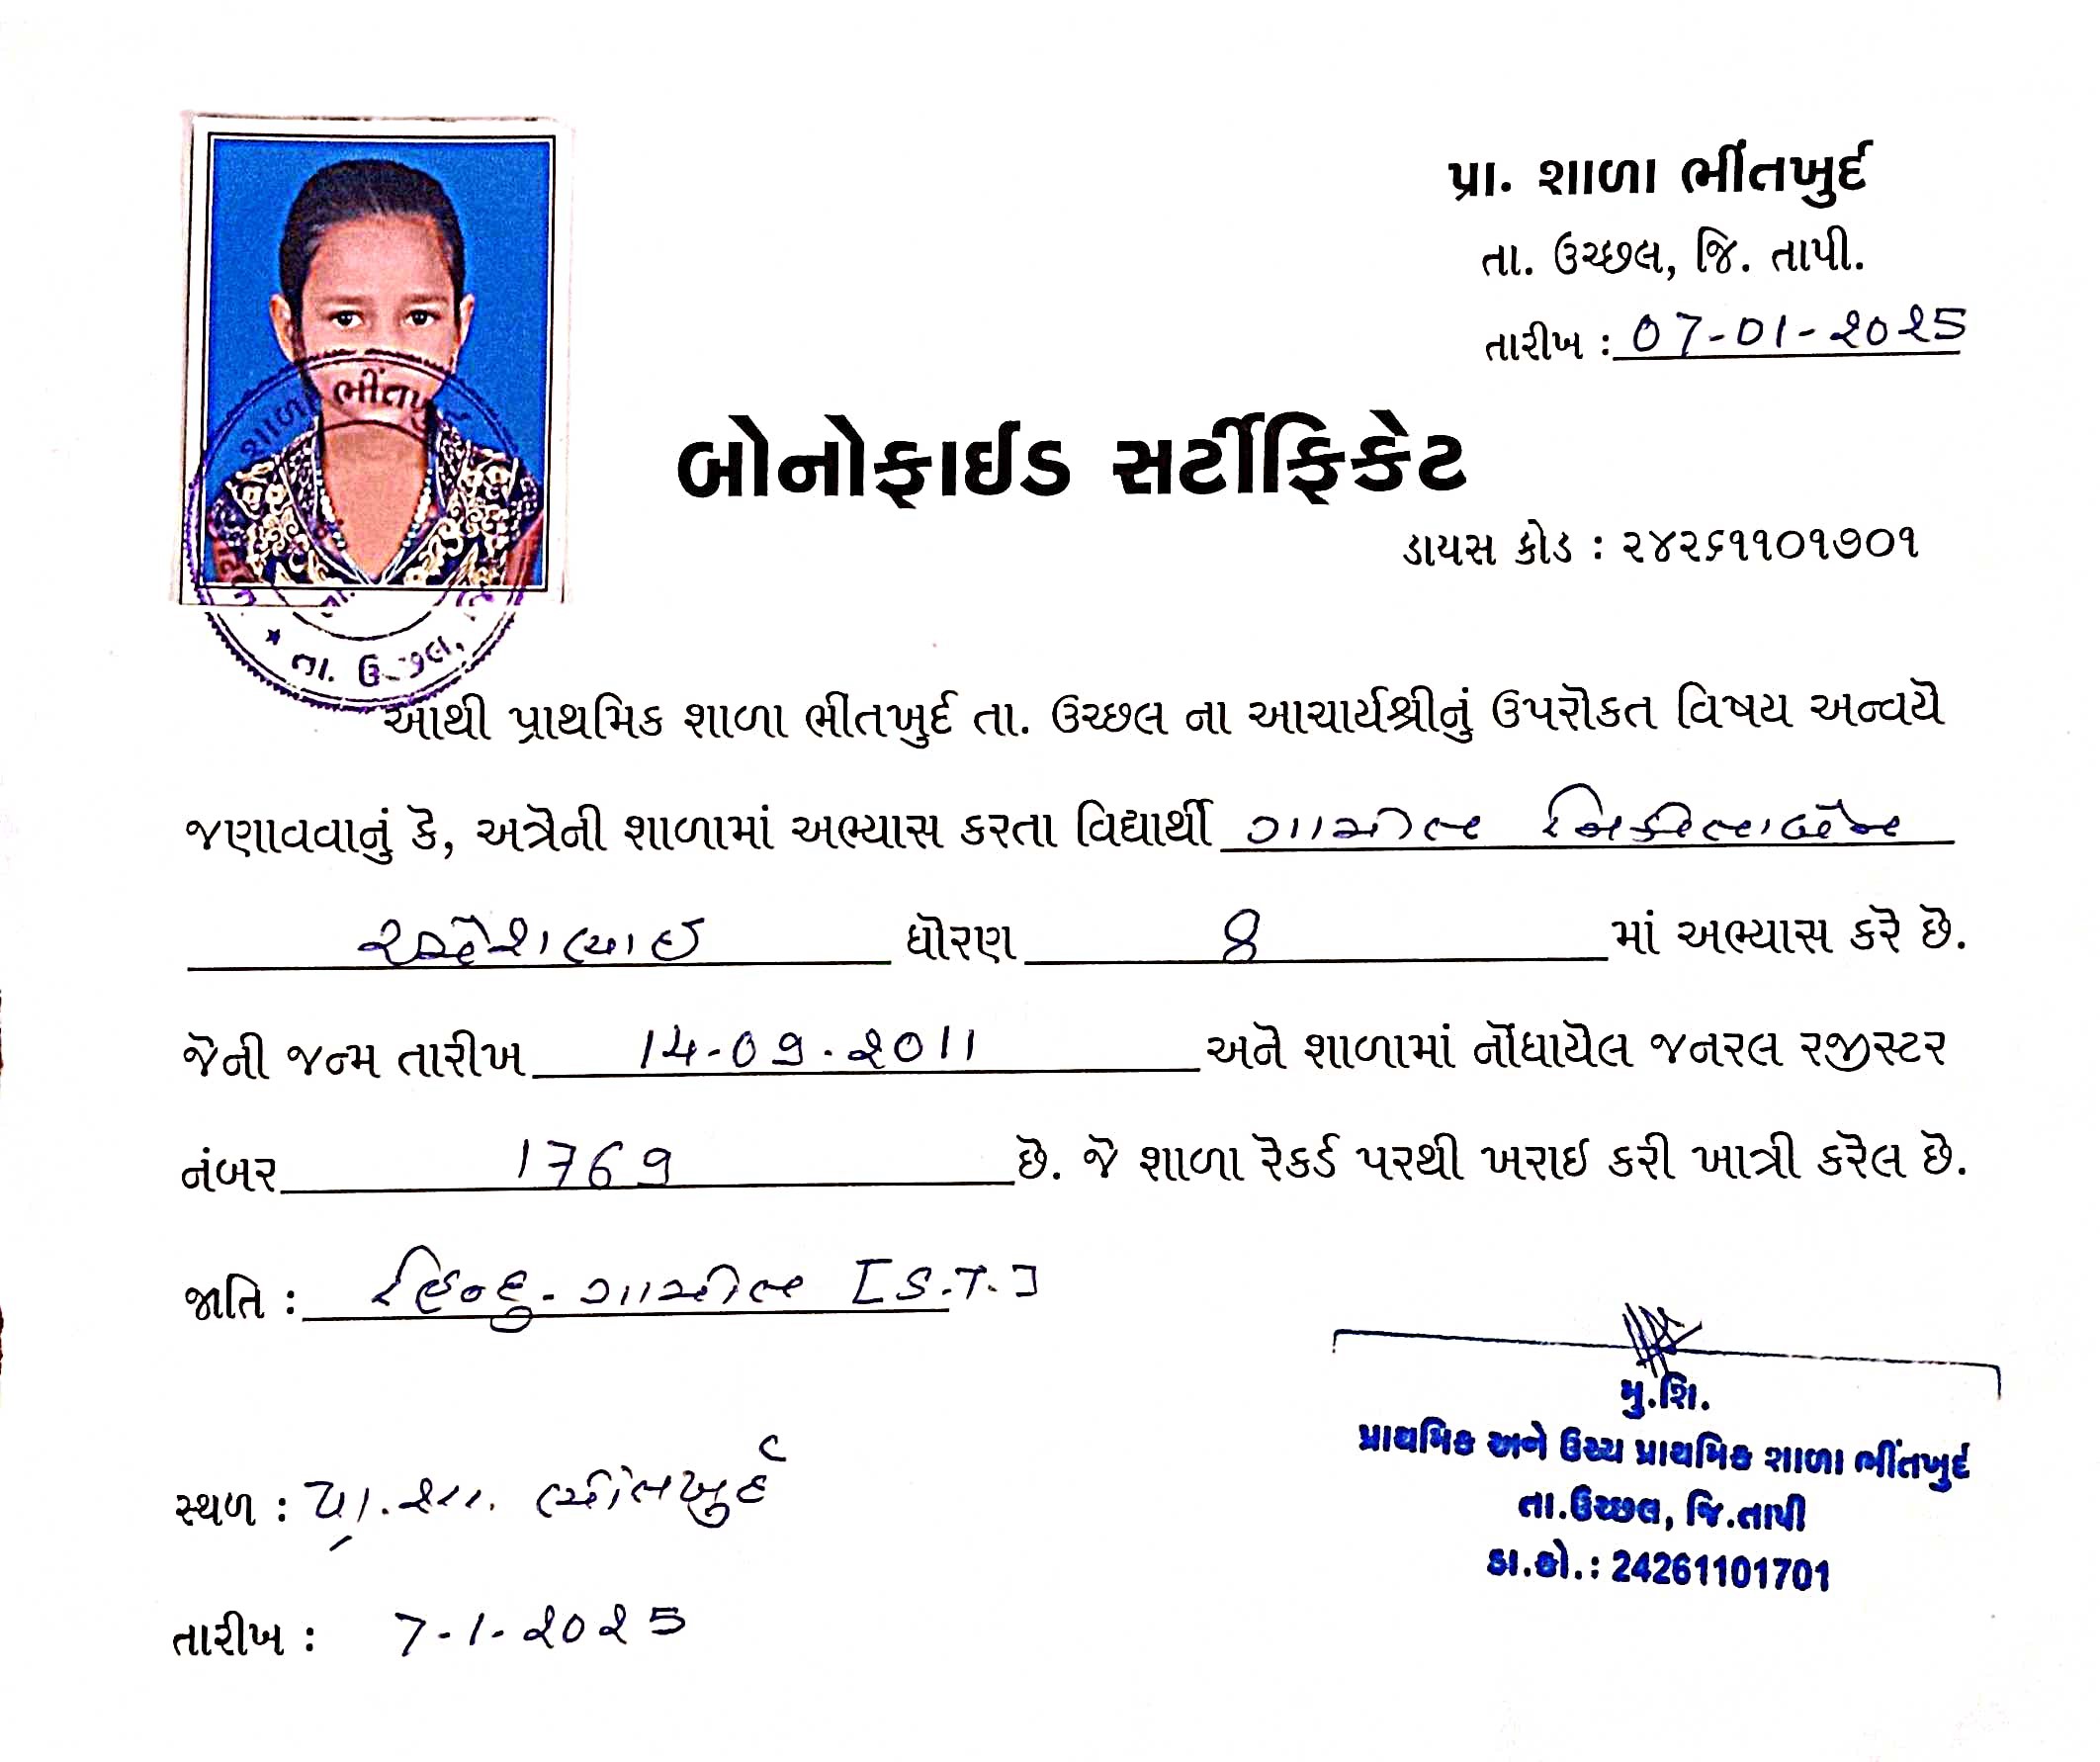 પ્રા. શાળા ભીંતખુર્દ
તા. ઉચ્છલ, જિ. તાપી.
તારીખ : 07-01-2025
બોનોફાઈડ સર્ટીફિકેટ
ડાયસ કોડ : ૨૪૨૬૧૧૦૧૭૦૧
શાળા ભીંતખુર્દ
તા. ઉચ્છલ,
આથી પ્રાથમિક શાળા ભીંતખુર્દ તા. ઉચ્છલ ના આચાર્યશ્રીનું ઉપરોકત વિષય અન્વયે
જણાવવાનું કે, અત્રેની શાળામાં અભ્યાસ કરતા વિદ્યાર્થી ગામીત નિકીતાબેન
ધોરણ 8 માં અભ્યાસ કરે છે.
જેની જન્મ તારીખ 14-09-2011 અને શાળામાં નોંધાયેલ જનરલ રજીસ્ટર
નંબર 1769 છે. જે શાળા રેકર્ડ પરથી ખરાઇ કરી ખાત્રી કરેલ છે.
જાતિ : હિન્દુ - ગામીત [S.T.]
મુ.શિ.
પ્રાથમિક અને ઉચ્ચ પ્રાથમિક શાળા ભીંતખુર્દ
તા.ઉચ્છલ, જિ.તાપી
ડા.કો.: 24261101701
સ્થળ : પ્રા. શા. ભીંતખુર્દ
તારીખ : 7-1-2025